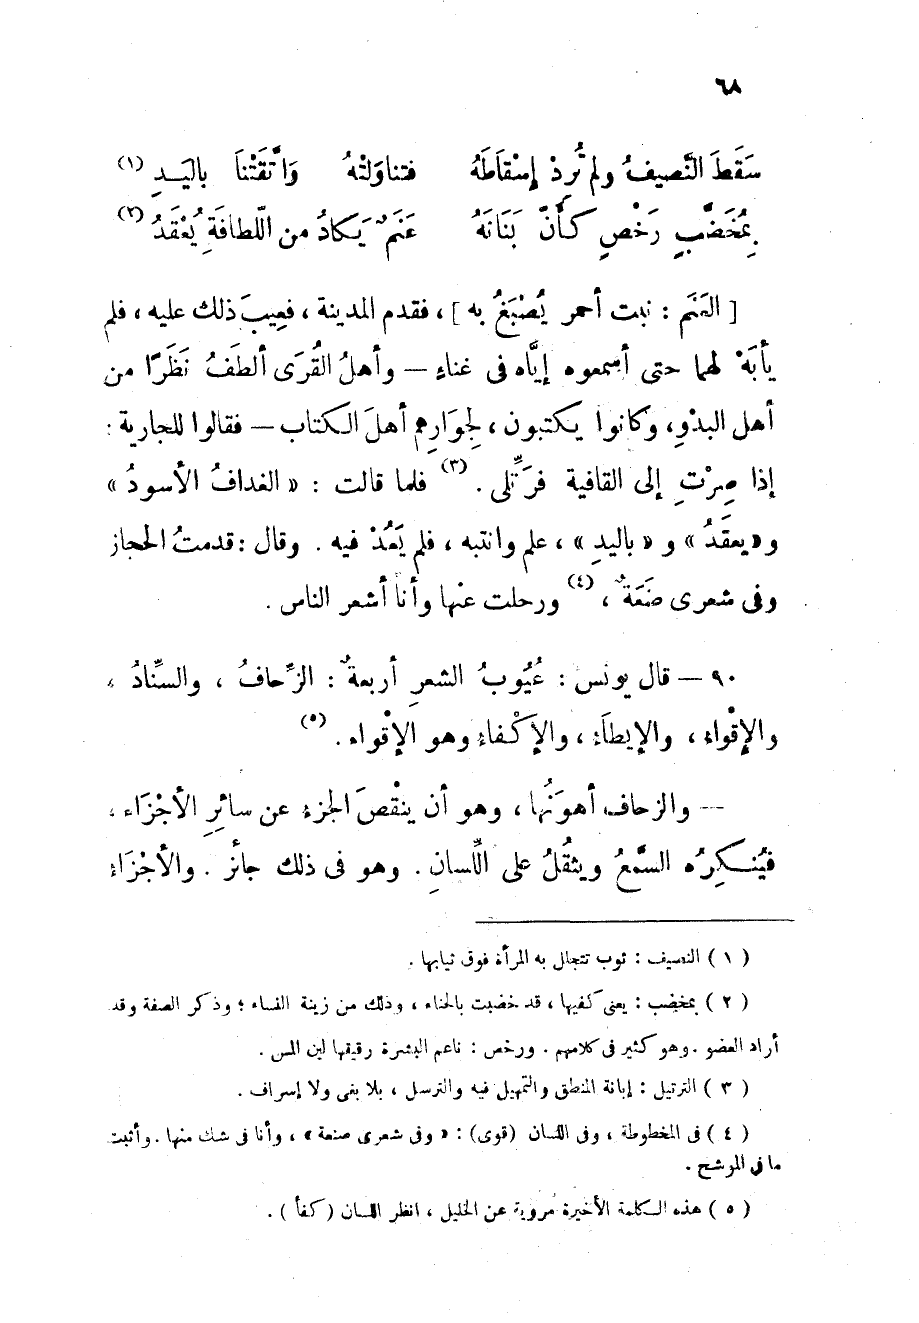 ٦٨
سَقَطَ النَّصيفُ ولم تُرِدْ إسْقاطَهُ فتناوَلتْهُ وَاتَّقَتْنَا باليَـدِ (١)
بِمُخَضَّبٍ رَخْصٍ كَأَنّ بَنَانَهُ عَنَمٌ يَكادُ من اللّطافَةِ يُعْقَدُ (٢)
[ العَنَم : نبت أحمر يُصْبَغُ به ] ، فقدم المدينة ، فعِيبَ ذلك عليه ، فلم
يأبَهْ لهما حتى أسمعوه إيَّاه فى غناءٍ — وأهلُ القُرَى ألطَفُ نَظَرًا من
أهل البدْوِ، وكانوا يكتبون ، لِجوَارِيهم أهلَ الكتاب — فقالوا للجارية :
إذا صِرْتِ إلى القافية فرَتِّلى . (٣) فلما قالت : « الغدافُ الأسودُ »
و «يعقَدُ » و « باليدِ » ، علم وانتبه ، فلم يَعُدْ فيه . وقال : قدمتُ الحجاز
وفى شعرى صَنَعَةٌ ، (٤) ورحلت عنها وأنا أشعر الناس .
٩٠ — قال يونس : عُيُوبُ الشعرِ أربعةٌ : الزِّحافُ ، والسِّنادُ ،
والإقْواءُ ، والإيطَاءُ ، والإكْفاءُ وهو الإقْواء . (٥)
— والزحاف أهوَنُها ، وهو أن ينقْصَ الجزء عن سائرِ الأجْزَاء ،
فيُنكِرُه السَّمْعُ ويثقُلُ على اللِّسانِ . وهو فى ذلك جائز . والأجْزَاءُ
( ١ ) النصيف : ثوب تتجلل به المرأة فوق ثيابها .
( ٢ ) بمخضب : يعنى كفيها ، قد خضبت بالحناء ، وذلك من زينة النساء ؛ وذكر الصفة وقد
أراد العضو . وهو كثير فى كلامهم . ورخص : ناعم البشرة رقيقها لين المس .
( ٣ ) الترتيل : إبانة المنطق والتمهل فيه والترسل ، بلا بغى ولا إسراف .
( ٤ ) فى المخطوطة ، وفى اللسان (قوى) : « وفى شعرى صنعة » ، وأنا فى شك منها . وأثبت
ما فى الموشح .
( ٥ ) هذه الكلمة الأخيرة مروية عن الخليل ، انظر اللسان ( كفأ ) .